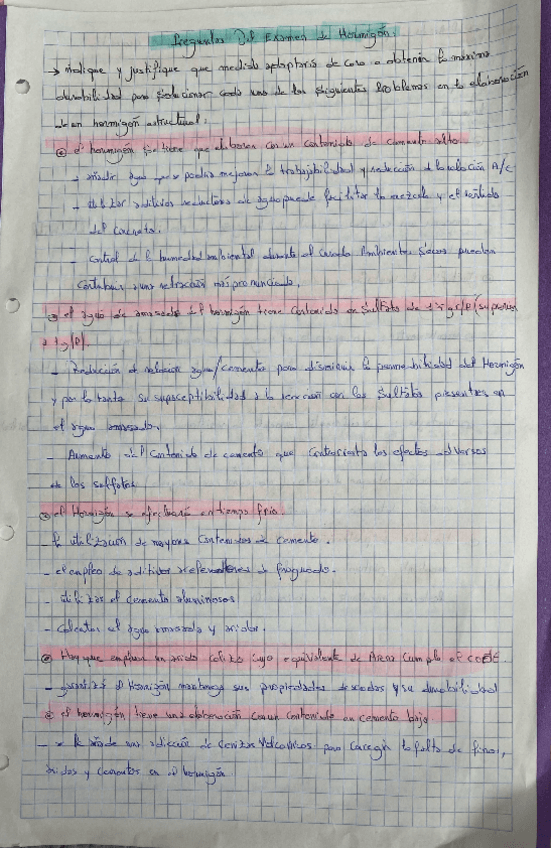 Preguntas Del Examen de Hormigón.
→ Indique y justifique que medida adoptaría de cara a obtener la máxima
durabilidad para solucionar cada uno de los siguientes Problemas en la elaboración
de un hormigón estructural.
el hormigón se tiene que elaborar con un contenido de cemento alto
- añadir agua para poder mejorar la trabajabilidad y reducción de la relación A/C
- utilizar aditivos reductores de agua puede facilitar la mezcla y el vertido
del concreto.
- Control de la humedad ambiental durante el curado Ambientes Secos pueden
contribuir a una retracción más pronunciada.
el agua de amasado del hormigón tiene contenido en Sulfato de
1 g/l).
- Reducción de relación agua/cemento para disminuir la permeabilidad del Hormigón
y por lo tanto su supsceptibilidad a la reacción con los Sulfatos presentes en
el agua amasado,
- Aumento del Contenido de cemento que contrarresta los efectos adversos
de los sulfatos
el Hormigón se efectuará en tiempo frío.
la utilización de mayores Contenidos de cemento.
- el empleo de aditivos aceleradores de fraguado.
- utilizar el cemento aluminosos
- Calentar el agua amasado y aridos.
Hay que emplear un arido calizo cuyo equivalente de Arena Cumpla el CODE
- garantiza el Hormigón mantenga sus propiedades deseadas y su durabilidad
el hormigón tiene una elaboración con un contenido en cemento bajo.
- se añade una adicción de Cenizas Volcanicas para Corregir la falta de finos,
aridos y cementos en el hormigón